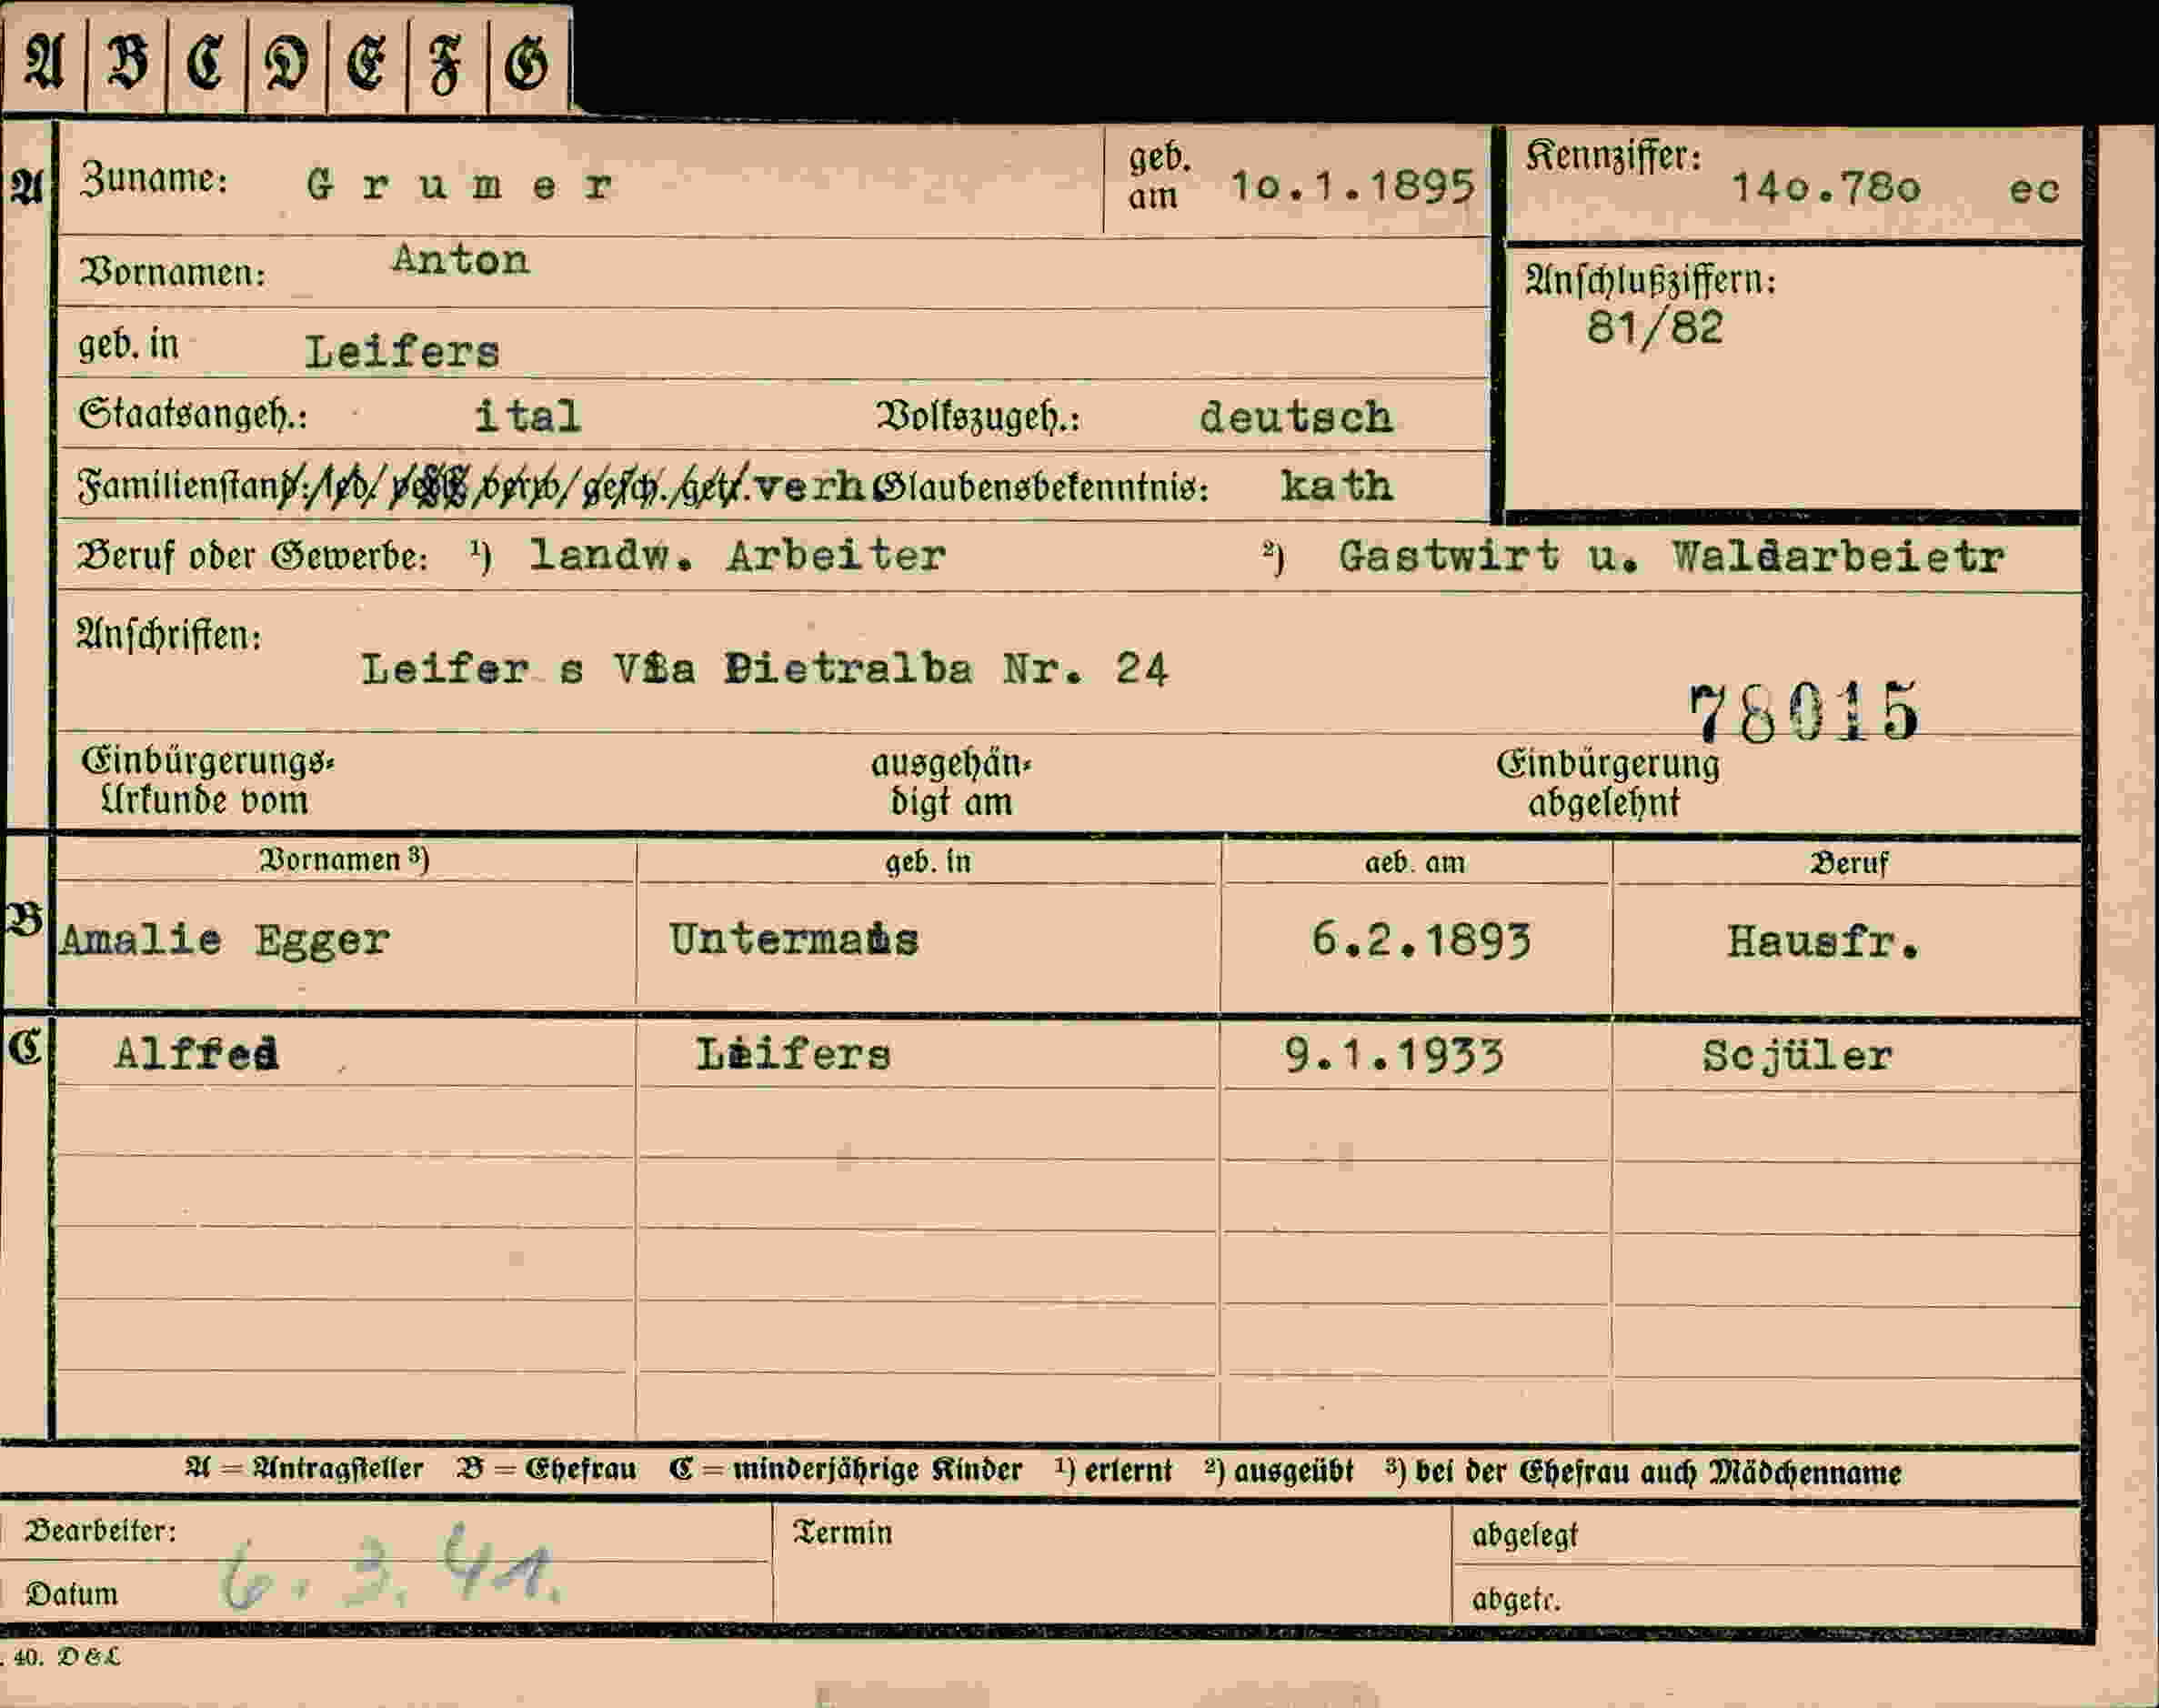 A B C D E F G
A Zuname: Grumer geb. am 10.1.1895 Kennziffer: 14o.78o ec
Vornamen: Anton
Anschlußziffern:
81/82
geb. in Leifers
Staatsangeh.: ital Volkszugeh.: deutsch
Familienstand: led. verh. verw. gesch. getr. verh Glaubensbekenntnis: kath
Beruf oder Gewerbe: ¹) landw. Arbeiter ²) Gastwirt u. Waldarbeietr
Anschriften:
Leifer s Via Pietralba Nr. 24
78015
Einbürgerungs-Urkunde vom ausgehändigt am Einbürgerung abgelehnt
Vornamen ³) geb. in geb. am Beruf
B Amalie Egger Untermais 6.2.1893 Hausfr.
C Alfred Leifers 9.1.1933 Scjüler
A = Antragsteller B = Ehefrau C = minderjährige Kinder ¹) erlernt ²) ausgeübt ³) bei der Ehefrau auch Mädchenname
Bearbeiter: Termin abgelegt
Datum 6. 3. 41. abgetr.
. 40. D & L